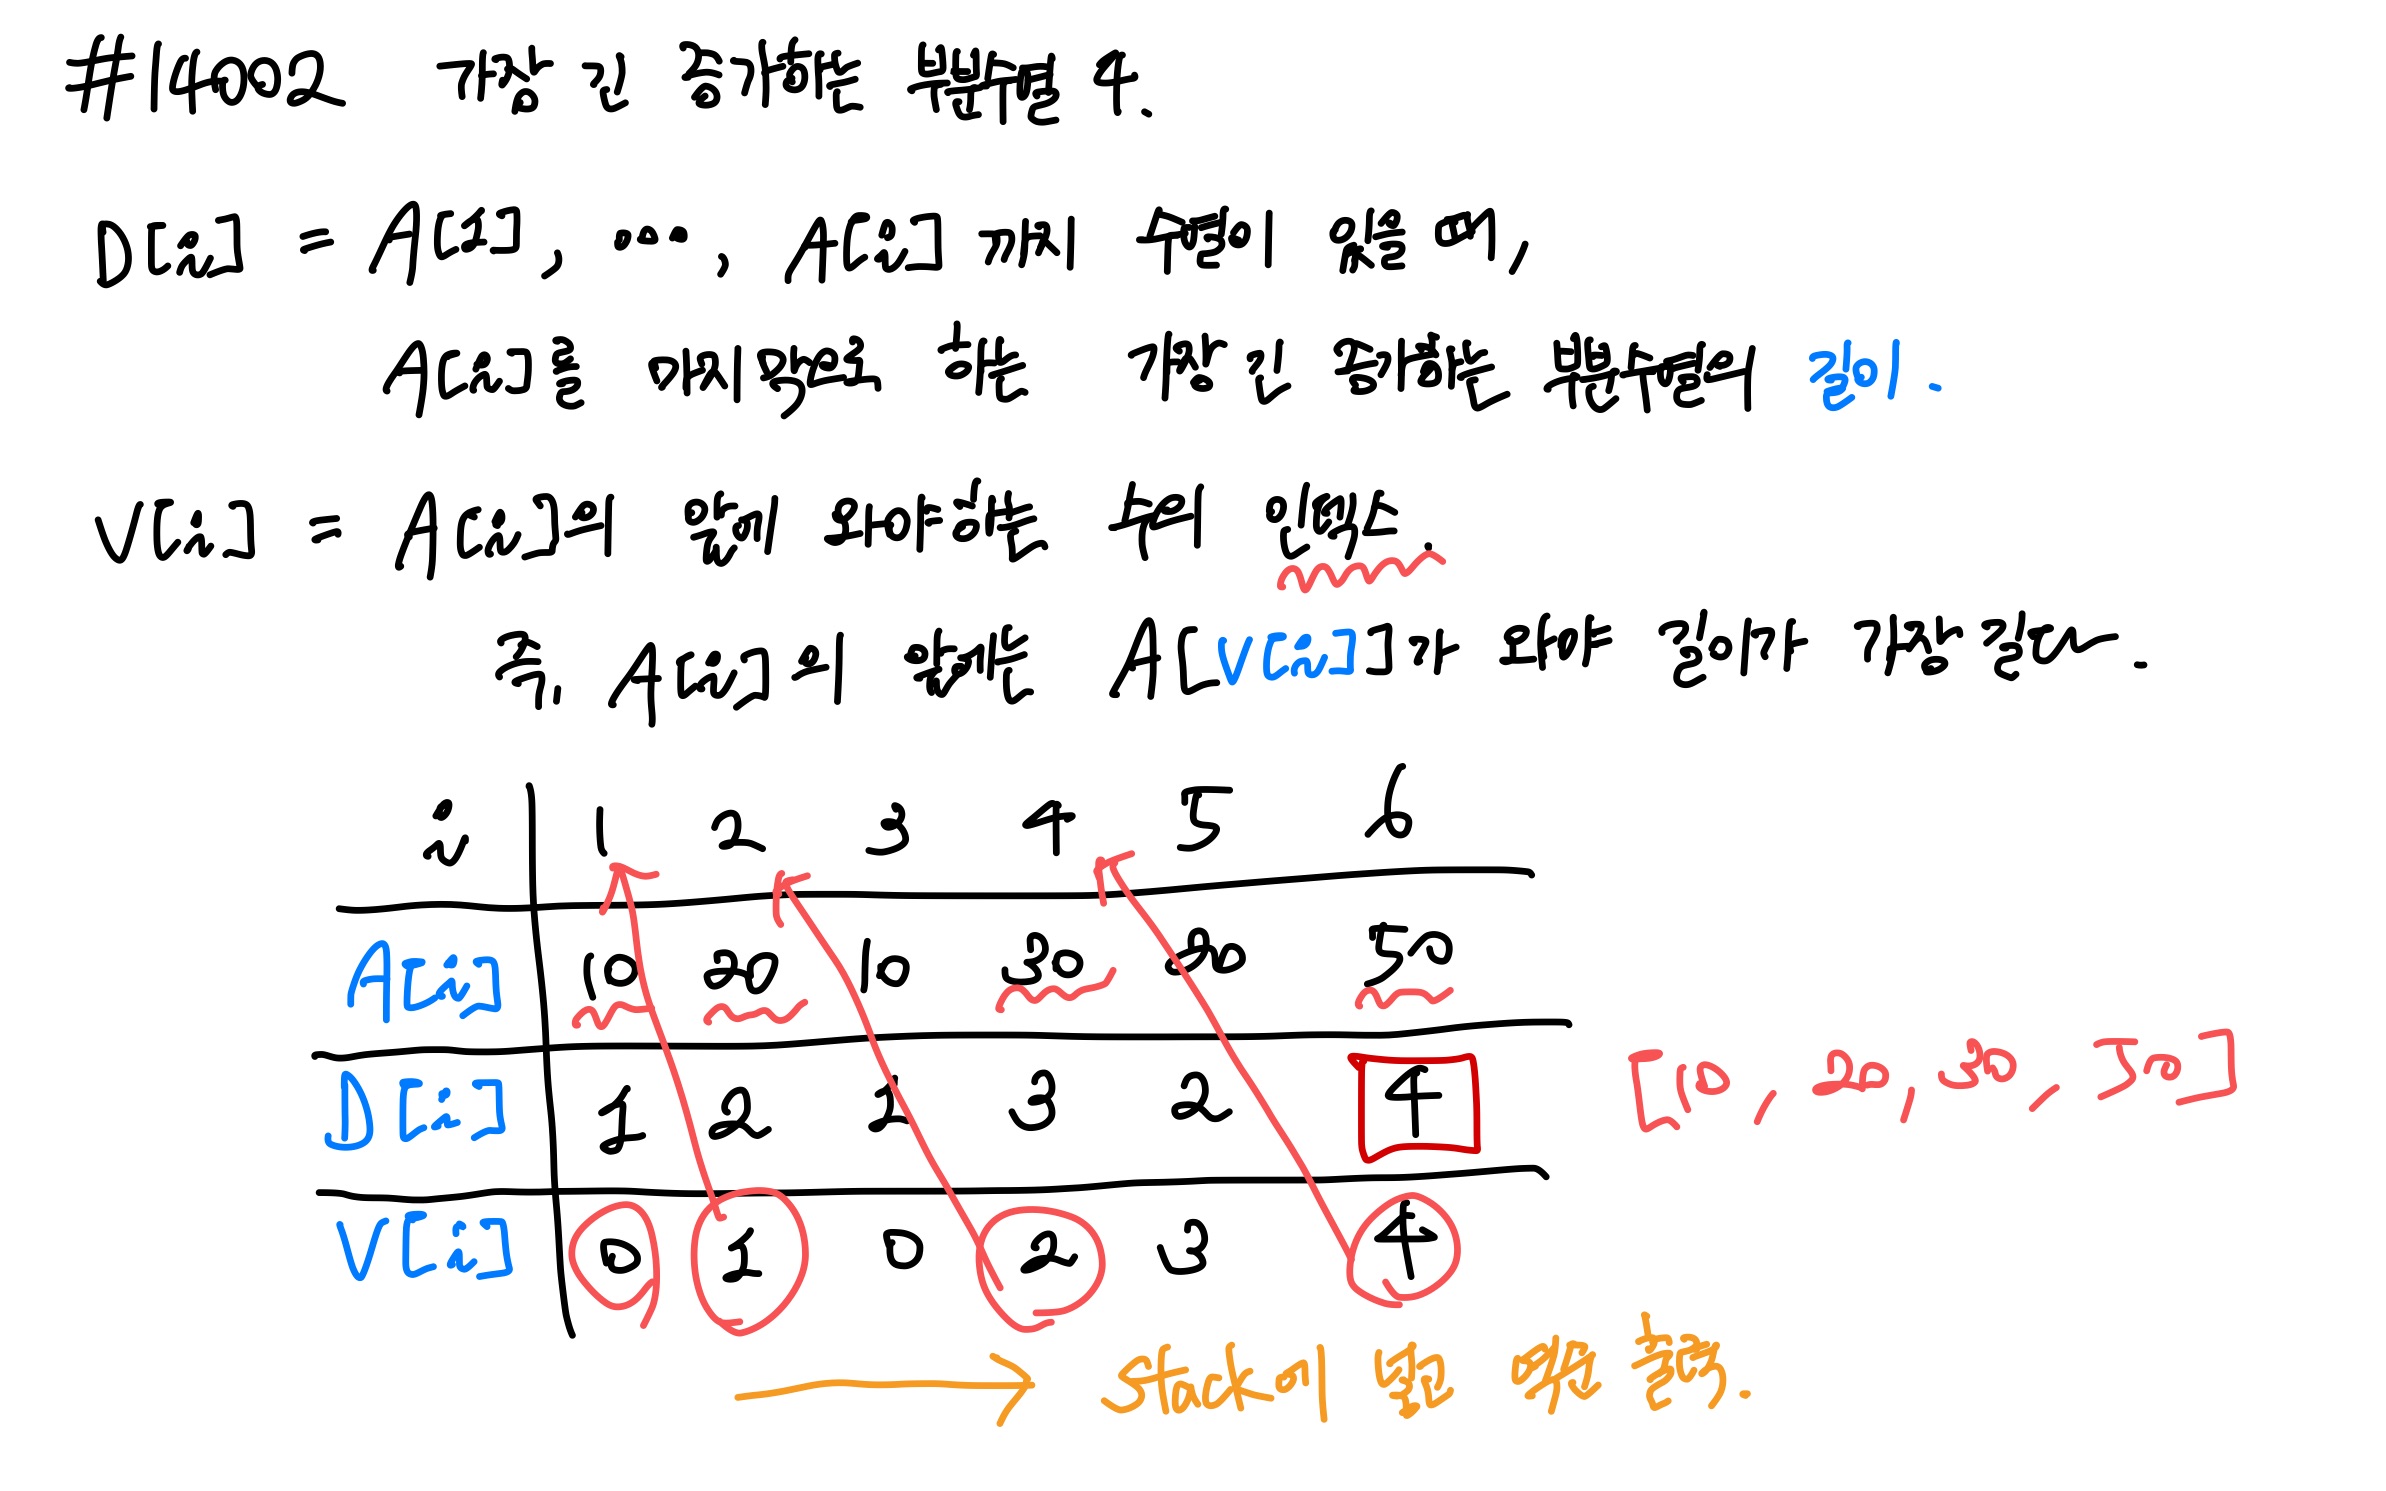 #14002 가장 긴 증가하는 부분 수열 4.
D[i] = A[1], ..., A[i] 까지 수열이 있을 때,
A[i]를 마지막으로 하는 가장 긴 증가하는 부분수열의 길이.
V[i] = A[i]의 앞에 와야하는 수의 인덱스.
즉, A[i]의 앞에는 A[V[i]]가 와야 길이가 가장 길다.
i 1 2 3 4 5 6
A[i] 10 20 10 30 20 50
D[i] 1 2 1 3 2 4 [10, 20, 30, 50]
V[i] 0 1 0 2 3 4
→ Stack에 넣고 역 출력.